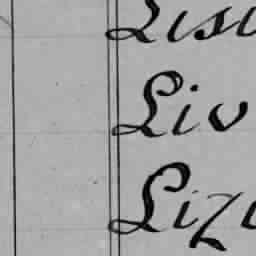 Lisi
Liv
Lizi